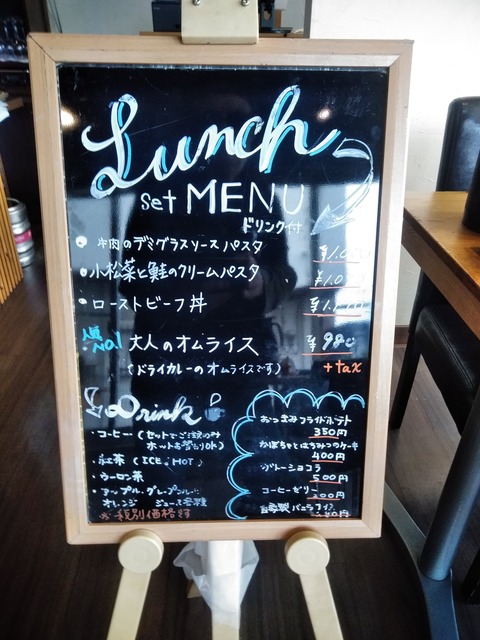 Lunch
set MENU
ドリンク付
牛肉のデミグラスソースパスタ
小松菜と鮭のクリームパスタ
ローストビーフ丼
人気No1 大人のオムライス ¥980
(ドライカレーのオムライスです) +tax
Drink
・コーヒー(セットでご注文のみ
ホットお替りOK)
・紅茶(ICE。HOT)
・ウーロン茶
・アップル、グレープフルーツ
オレンジ ジュース各種
※税別価格です
おつまみフライドポテト
350円
かぼちゃとはちみつのケーキ
400円
ガトーショコラ
500円
コーヒーゼリー
200円
自家製バニラアイス